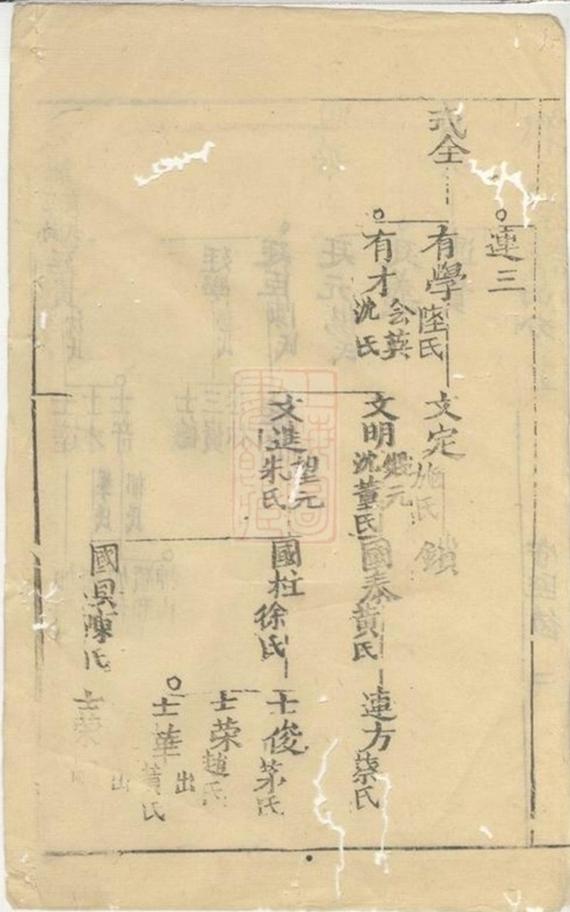 連三
式全
有學 陸氏
有才 会英 沈氏
文定 施氏
鎖
文明 沈氏 董氏
文進 望元 朱氏
國泰 黄氏
國柱 徐氏
國 陳氏
連方 蔡氏
士俊 茅氏
士荣 趙氏
士華 黄氏
出
士荣
出